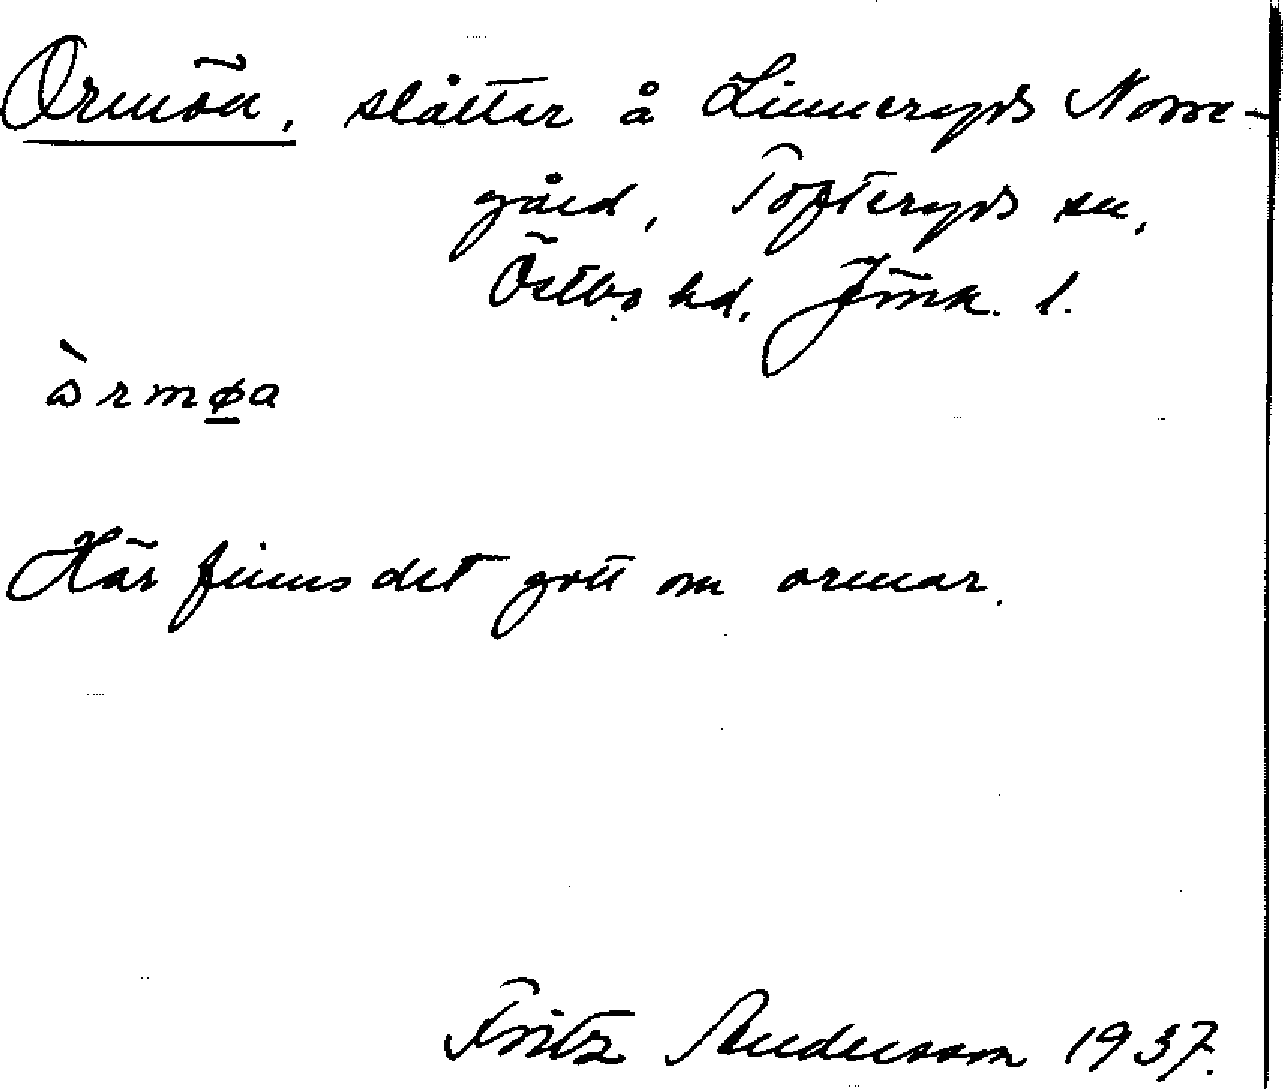 Ormön, slåtter å Linneryds Norre-
gård, Tofteryds sn,
Östbo hd, Jönk. l.
òrmøa
Här finns det gott om ormar.
Fritz Andersson 1937.